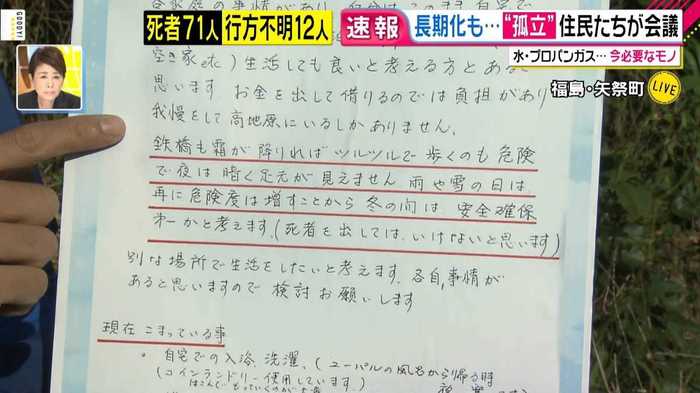 GOODY!
死者71人 行方不明12人
速報
長期化も…“孤立”住民たちが会議
水・プロパンガス…今必要なモノ
福島・矢祭町
LIVE
空き家etc)生活しても良いと考える方とある
思います お金を出して借りるのでは負担があり
我慢をして高地原にいるしかありません。
鉄橋も霜が降りればツルツルで歩くのも危険
で夜は暗く足元が見えません 雨や雪の日は
再に危険度は増すことから 冬の間は、安全確保
オーかと考えます。(死者を出しては、いけないと思います)
別な場所で生活をしたいと考えます、各自、事情が
あると思いますので 検討お願いします
現在 こまっている事
・自宅での入浴、洗濯、(ユーパルの風呂から帰る時
(コインランドリー使用しています)